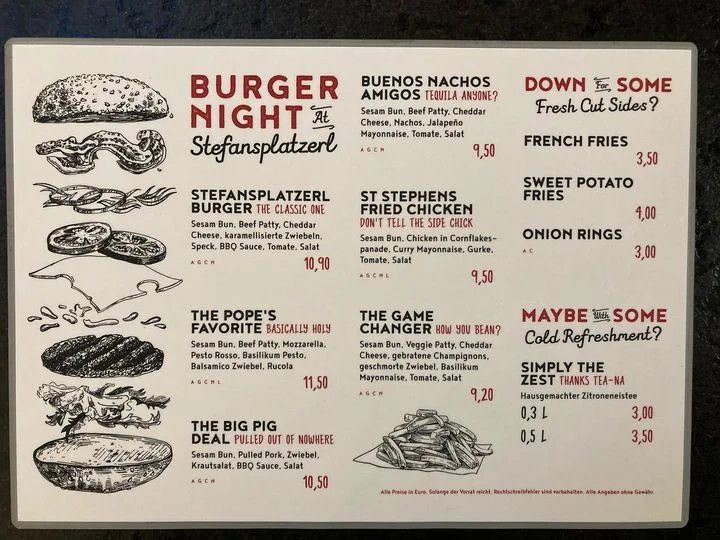 BURGER
NIGHT At
Stefansplatzerl
STEFANSPLATZERL
BURGER THE CLASSIC ONE
Sesam Bun, Beef Patty, Cheddar
Cheese, karamellisierte Zwiebeln,
Speck, BBQ Sauce, Tomate, Salat
A G C M
10,90
THE POPE'S
FAVORITE BASICALLY HOLY
Sesam Bun, Beef Patty, Mozzarella,
Pesto Rosso, Basilikum Pesto,
Balsamico Zwiebel, Rucola
A G C M L
11,50
THE BIG PIG
DEAL PULLED OUT OF NOWHERE
Sesam Bun, Pulled Pork, Zwiebel,
Krautsalat, BBQ Sauce, Salat
A G C M
10,50
BUENOS NACHOS
AMIGOS TEQUILA ANYONE?
Sesam Bun, Beef Patty, Cheddar
Cheese, Nachos, Jalapeño
Mayonnaise, Tomate, Salat
A G C M
9,50
ST STEPHENS
FRIED CHICKEN
DON'T TELL THE SIDE CHICK
Sesam Bun, Chicken in Cornflakes-
panade, Curry Mayonnaise, Gurke,
Tomate, Salat
A G C M L
9,50
THE GAME
CHANGER HOW YOU BEAN?
Sesam Bun, Veggie Patty, Cheddar
Cheese, gebratene Champignons,
geschmorte Zwiebel, Basilikum
Mayonnaise, Tomate, Salat
A G C M
9,20
DOWN For SOME
Fresh Cut Sides?
FRENCH FRIES
3,50
SWEET POTATO
FRIES
4,00
ONION RINGS
A C
3,00
MAYBE With SOME
Cold Refreshment?
SIMPLY THE
ZEST THANKS TEA-NA
Hausgemachter Zitroneneistee
0,3 L 3,00
0,5 L 3,50
Alle Preise in Euro. Solange der Vorrat reicht. Rechtschreibfehler sind vorbehalten. Alle Angaben ohne Gewähr.